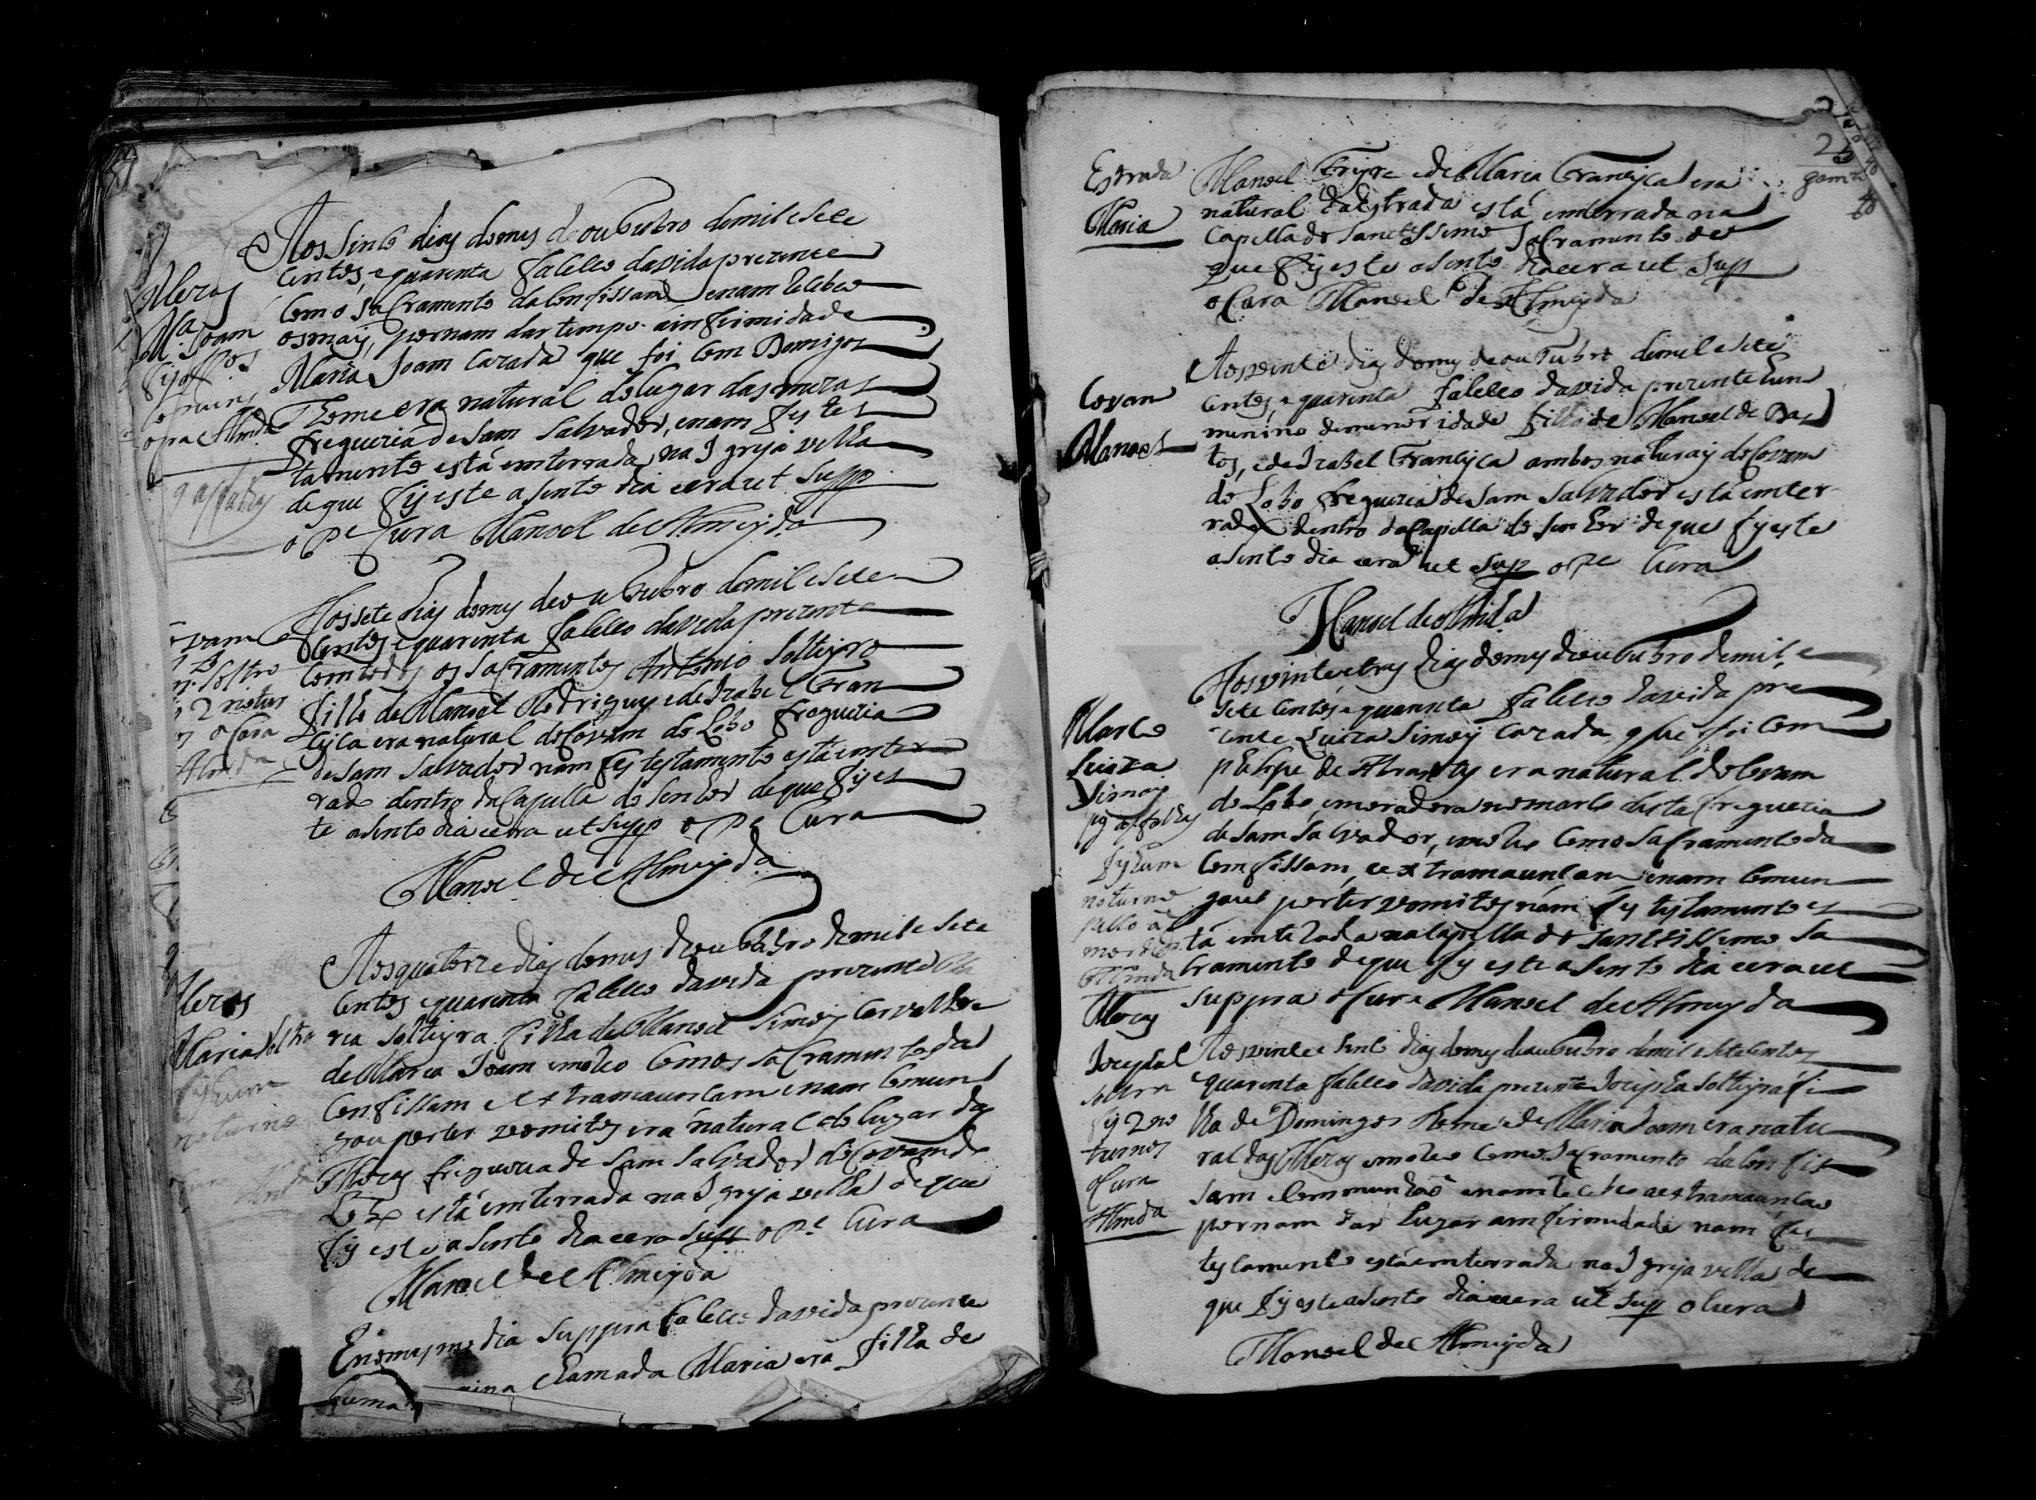 Meras
Mª Joam
Aos sinto dias do mes de outubro de mil e sete
centos, e quarenta faleceo da vida prezente
com o sacramento da confissam, e nam recebeo
os mais, por nam dar tempo a infirmidade
Maria Joam cazada que foi com Domigos
Thome era natural do lugar das meras
freguezia de Sam Salvador, e nam fes tes
tamento está emterrada na Igreja velha
de que fis este asento dia e era ut supp
o Pe Cura Manoel de Almeyda
Aos sete dias do mes de outubro de mil e sete
centos e quarenta faleceo da vida prezente
com todos os sacramentos Antonio Solteyro
filho de Manoel Rodrigues e de Izabel Fran
cisca era natural do Covam do Lobo freguezia
de Sam Salvador nam fes testamento está enter
rado dentro da Capella do Senhor de que fis es
te asento dia e era ut supp o Pe Cura
Manoel de Almeyda
Meras
Maria soltra
fis hum
noturno
Aos quatorze dias do mes de outubro de mil e sete
centos e quarenta faleceo da vida prezente Ma
ria solteyra filha de Manoel Simois Carvalho e
de Maria Joam e moreo com os sacramentos da
confissam e extramaunsam e nam comun
gou por ter vomitos era natural do lugar das
Mocas freguezia de Sam Salvador do Covam do
Lobo está emterrada na Igreja velha de que
fis este asento dia e era supp o Pe Cura
Manoel de Almeyda
E no mesmo dia suppra faleceo da vida prezente
huma menina chamada Maria era filha de
Estrada
Maria
Manoel Freyre e de Maria Francisca era
natural da estrada está emterrada na
Capella do Santissimo Sacramento de
que fis este asento dia e era ut sup
o Cura Manoel de Almeyda
Covam
Manoel
Aos vinte dias do mes de outubro de mil e sete
centos, e quarenta faleceo da vida prezente hum
minino de menor idade filho de Manoel de Bas
tos, e de Izabel Francisca ambos naturais do Covam
do Lobo freguezia de Sam Salvador está inter
rado dentro da Capella do Senhor de que fis este
asento dia e era ut sup o Pe Cura
Manoel de Almda
Marco
Luiza
Simois
fis hum
noturno
Almda
Aos vinte e tres dias do mes de outubro de mil, e
sete centos, e quarenta faleceo da vida pre
zente Luiza Simois cazada que foi com
Phelipe de Abrantes era natural do Covam
do Lobo, e moradora no marco desta freguezia
de Sam Salvador, e moreo com o sacramento da
comfissam, e extramaunsam e nam comun
gou por ter vomitos nam fes testamento es
tá emterrada na Capella do Santissimo Sa
cramento de que fis este asento dia e era ut
suppra o Cura Manoel de Almeyda
Mocas
Jocepha
soltra
fis 2 no
turnos
o Cura
Almda
Aos vinte e sinto dias do mes de outubro de mil e sete centos
e quarenta faleceo da vida prezente Jocepha solteyra fi
lha de Domingos Thome e de Maria Joam era natu
ral das Meras e moreo com o sacramento da confis
sam e communhaõ e nam recebeo a extramaunsaõ
por nam dar lugar a infirmidade nam fes
testamento está emterrada na Igreja velha de
que fis este asento dia e era ut supp o Cura
Manoel de Almeyda